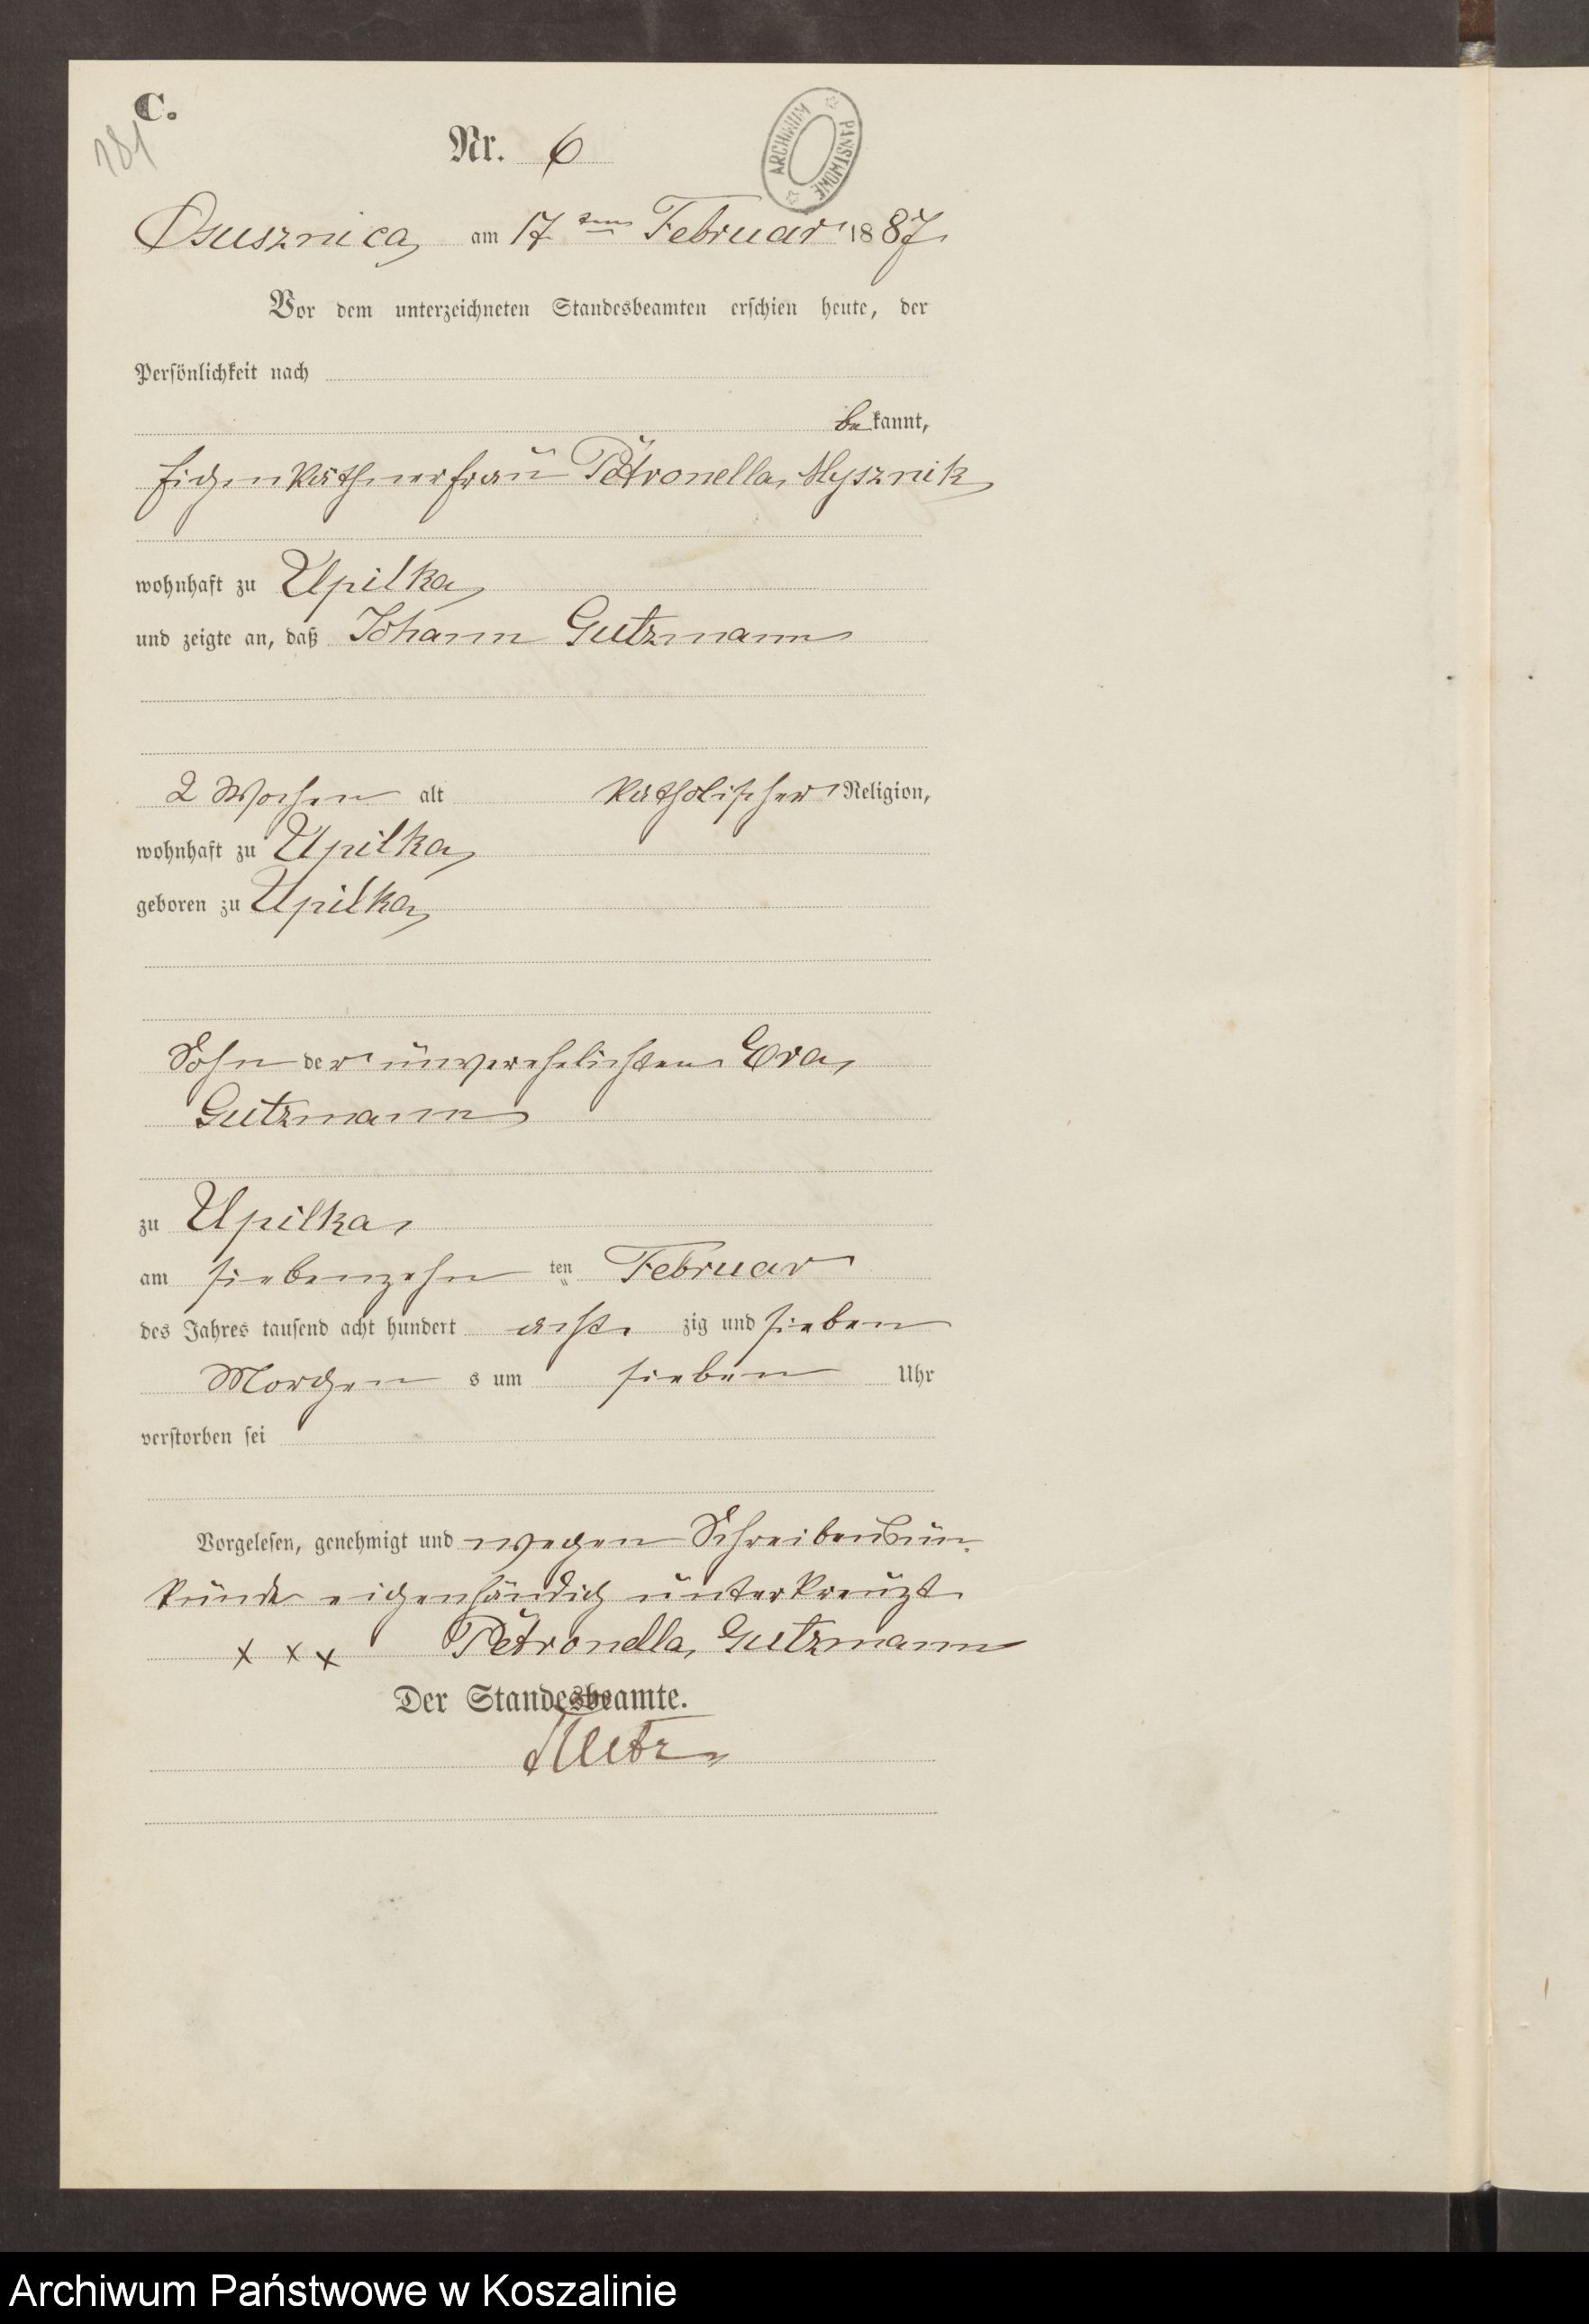 C.
181
Nr. 6
ARCHIWUM PAŃSTWOWE
Osusznica am 17ten Februar 1887
Vor dem unterzeichneten Standesbeamten erschien heute, der
Persönlichkeit nach
bekannt,
Eigenkäthnerfrau Petronella Mysznik
wohnhaft zu Upilka
und zeigte an, daß Johann Gutzmann
2 Wochen alt katholischer Religion,
wohnhaft zu Upilka
geboren zu Upilka
Sohn der unverehelichten Eva
Gutzmann
zu Upilka
am siebenzehn ten Februar
des Jahres tausend acht hundert acht zig und sieben
Morgen s um sieben Uhr
verstorben sei
Vorgelesen, genehmigt und wegen Schreibensun-
kunde eigenhändig unterkreuzt
x x x Petronella Gutzmann
Der Standesbeamte.
Archiwum Państwowe w Koszalinie